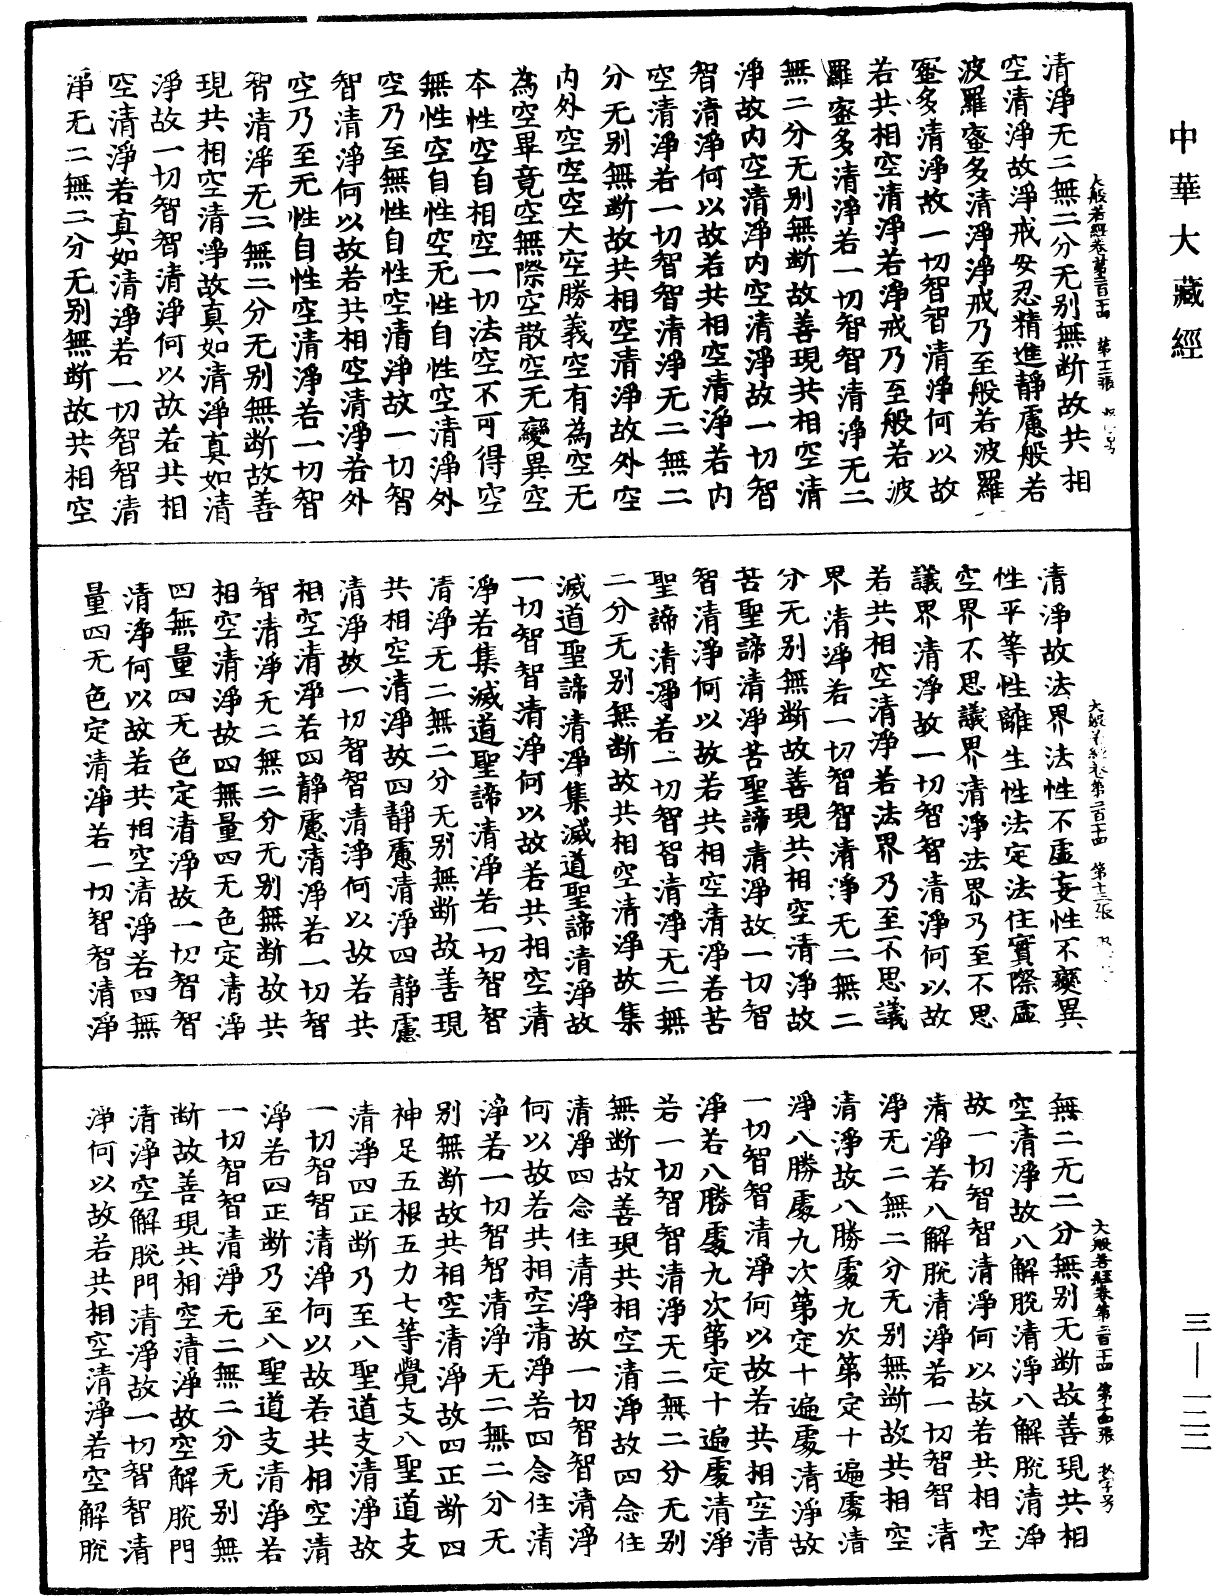 中華大藏經
清淨无二無二分无别無断故共相
空清淨故淨戒安忍精進靜慮般若
波羅蜜多清淨淨戒乃至般若波羅
蜜多清淨故一切智智清淨何以故
若共相空清淨若淨戒乃至般若波
羅蜜多清淨若一切智智清淨无二
無二分无别無断故善現共相空清
淨故内空清淨内空清淨故一切智
智清淨何以故若共相空清淨若内
空清淨若一切智智清淨无二無二
分无别無断故共相空清淨故外空
内外空空空大空勝義空有為空无
為空畢竟空無際空散空无變異空
本性空自相空一切法空不可得空
無性空自性空无性自性空清淨外
空乃至無性自性空清淨故一切智
智清淨何以故若共相空清淨若外
空乃至无性自性空清淨若一切智
智清淨无二無二分无别無断故善
現共相空清淨故真如清淨真如清
淨故一切智智清淨何以故若共相
空清淨若真如清淨若一切智智清
淨无二無二分无别無断故共相空
大般若經卷第二百十四 第十二張
清淨故法界法性不虚妄性不變異
性平等性離生性法定法住實際虚
空界不思議界清淨法界乃至不思
議界清淨故一切智智清淨何以故
若共相空清淨若法界乃至不思議
界清淨若一切智智清淨无二無二
分无别無断故善現共相空清淨故
苦聖諦清淨苦聖諦清淨故一切智
智清淨何以故若共相空清淨若苦
聖諦清淨若一切智智清淨无二無
二分无别無断故共相空清淨故集
滅道聖諦清淨集滅道聖諦清淨故
一切智智清淨何以故若共相空清
淨若集滅道聖諦清淨若一切智智
清淨无二無二分无别無断故善現
共相空清淨故四靜慮清淨四靜慮
清淨故一切智智清淨何以故若共
相空清淨若四靜慮清淨若一切智
智清淨无二無二分无别無断故共
相空清淨故四無量四无色定清淨
四無量四无色定清淨故一切智智
清淨何以故若共相空清淨若四無
量四无色定清淨若一切智智清淨
大般若經卷第二百十四 第十三張
無二无二分無别无断故善現共相
空清淨故八解脫清淨八解脫清淨
故一切智智清淨何以故若共相空
清淨若八解脫清淨若一切智智清
淨无二無二分无别無断故共相空
清淨故八勝處九次第定十遍處清
淨八勝處九次第定十遍處清淨故
一切智智清淨何以故若共相空清
淨若八勝處九次第定十遍處清淨
若一切智智清淨无二無二分无别
無断故善現共相空清淨故四念住
清淨四念住清淨故一切智智清淨
何以故若共相空清淨若四念住清
淨若一切智智清淨无二無二分无
别無断故共相空清淨故四正断四
神足五根五力七等覺支八聖道支
清淨四正断乃至八聖道支清淨故
一切智智清淨何以故若共相空清
淨若四正断乃至八聖道支清淨若
一切智智清淨无二無二分无别無
断故善現共相空清淨故空解脫門
清淨空解脫門清淨故一切智智清
淨何以故若共相空清淨若空解脫
大般若經卷第二百十四 第十四張
三—一二二